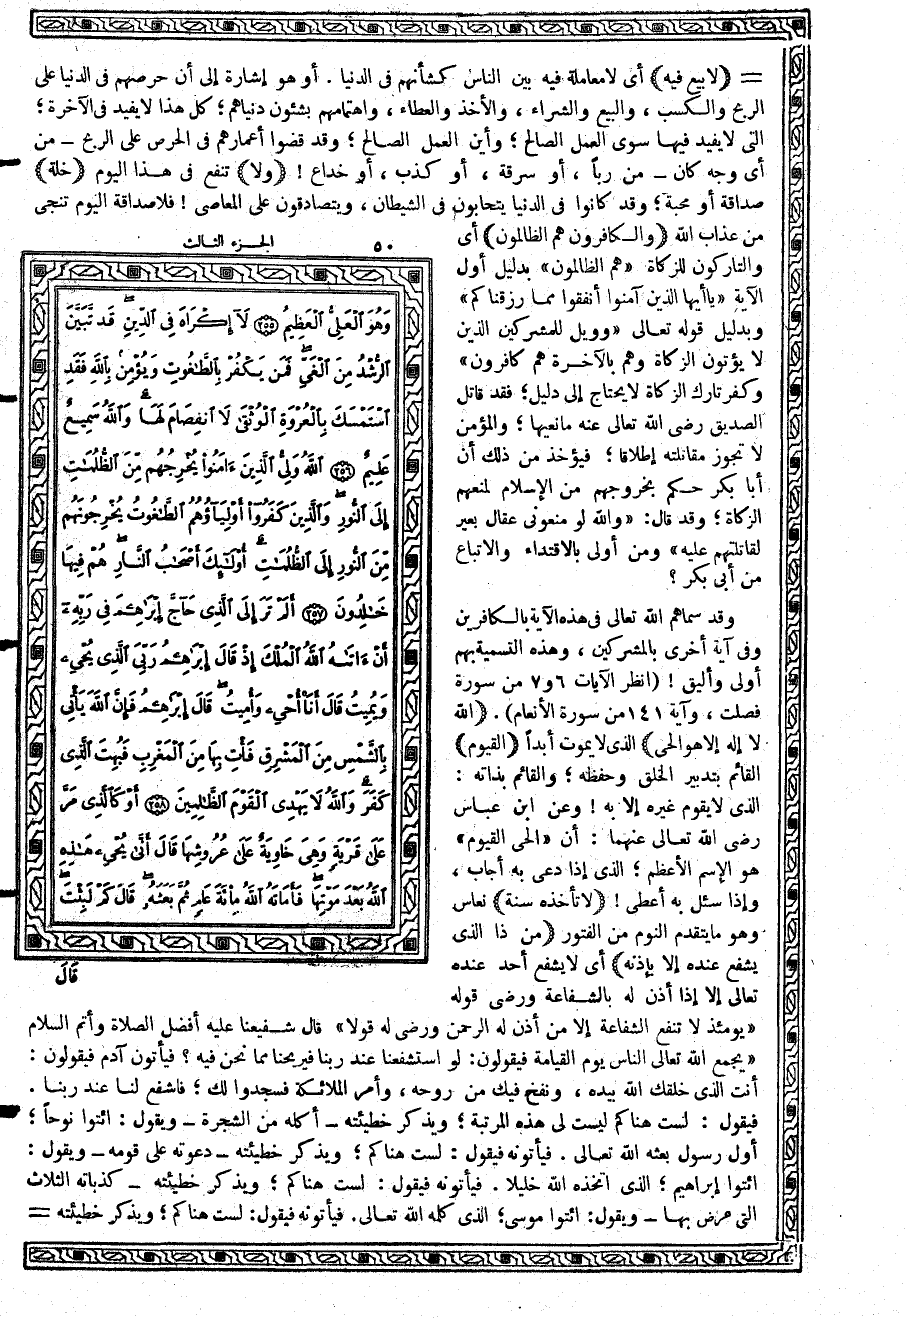 = (لابيع فيه) أى لامعاملة فيه بين الناس كشأنهم فى الدنيا . أو هو إشارة إلى أن حرصهم فى الدنيا على
الربح والكسب ، والبيع والشراء ، والأخذ والعطاء ، واهتمامهم بشئون دنياهم ؛ كل هذا لايفيد فى الآخرة ؛
التى لا يفيد فيها سوى العمل الصالح ؛ وأين العمل الصالح ؛ وقد قضوا أعمارهم فى الحرص على الربح – من
أى وجه كان – من رباً ، أو سرقة ، أو كذب ، أو خداع ! (ولا) تنفع فى هذا اليوم (خلة)
صداقة أو محبة ؛ وقد كانوا فى الدنيا يتحابون فى الشيطان ، ويتصادقون على المعاصى ! فلاصداقة اليوم تنجى
من عذاب الله (والكافرون هم الظالمون) أى
والتاركون للزكاة «هم الظالمون» بدليل أول
الآية «ياأيها الذين آمنوا أنفقوا مما رزقناكم»
وبدليل قوله تعالى «وويل للمشركين الذين
لا يؤتون الزكاة وهم بالآخرة هم كافرون»
وكفر تارك الزكاة لايحتاج إلى دليل ؛ فقد قاتل
الصديق رضى الله تعالى عنه مانعيها ؛ والمؤمن
لا تجوز مقاتلته إطلاقا ؛ فيؤخذ من ذلك أن
أبا بكر حكم بخروجهم من الإسلام لمنعهم
الزكاة ؛ وقد قال: «والله لو منعونى عقال بعير
لقاتلتهم عليه» ومن أولى بالاقتداء والاتباع
من أبى بكر ؟
وقد سماهم الله تعالى فى هذه الآية بالكافرين
وفى آية أخرى بالمشركين ، وهذه التسمية بهم
أولى وأليق ! (انظر الآيات ٦و٧ من سورة
فصلت ، وآية ١٤١ من سورة الأنعام) . (الله
لا إله إلا هو الحى) الذى لايموت أبداً (القيوم)
القائم بتدبير الخلق وحفظه ؛ والقائم بذاته :
الذى لايقوم غيره إلا به ! وعن ابن عباس
رضى الله تعالى عنهما : أن «الحى القيوم»
هو الإسم الأعظم ؛ الذى إذا دعى به أجاب ،
وإذا سئل به أعطى ! (لا تأخذه سنة) نعاس
وهو مايتقدم النوم من الفتور (من ذا الذى
يشفع عنده إلا بإذنه) أى لايشفع أحد عنده
تعالى إلا إذا أذن له بالشفاعة ورضى قوله
الجزء الثالث ٥٠
وَهُوَ ٱلْعَلِىُّ ٱلْعَظِيمُ ﴿٢٥٥﴾ لَآ إِكْرَاهَ فِى ٱلدِّينِ ۖ قَد تَّبَيَّنَ
ٱلرُّشْدُ مِنَ ٱلْغَىِّ ۚ فَمَن يَكْفُرْ بِٱلطَّـٰغُوتِ وَيُؤْمِنۢ بِٱللَّهِ فَقَدِ
ٱسْتَمْسَكَ بِٱلْعُرْوَةِ ٱلْوُثْقَىٰ لَا ٱنفِصَامَ لَهَا ۗ وَٱللَّهُ سَمِيعٌ
عَلِيمٌ ﴿٢٥٦﴾ ٱللَّهُ وَلِىُّ ٱلَّذِينَ ءَامَنُوا۟ يُخْرِجُهُم مِّنَ ٱلظُّلُمَـٰتِ
إِلَى ٱلنُّورِ ۖ وَٱلَّذِينَ كَفَرُوٓا۟ أَوْلِيَآؤُهُمُ ٱلطَّـٰغُوتُ يُخْرِجُونَهُم
مِّنَ ٱلنُّورِ إِلَى ٱلظُّلُمَـٰتِ ۗ أُو۟لَـٰٓئِكَ أَصْحَـٰبُ ٱلنَّارِ ۖ هُمْ فِيهَا
خَـٰلِدُونَ ﴿٢٥٧﴾ أَلَمْ تَرَ إِلَى ٱلَّذِى حَآجَّ إِبْرَٰهِـۧمَ فِى رَبِّهِۦٓ
أَنْ ءَاتَىٰهُ ٱللَّهُ ٱلْمُلْكَ إِذْ قَالَ إِبْرَٰهِـۧمُ رَبِّىَ ٱلَّذِى يُحْىِۦ
وَيُمِيتُ قَالَ أَنَا۠ أُحْىِۦ وَأُمِيتُ ۖ قَالَ إِبْرَٰهِـۧمُ فَإِنَّ ٱللَّهَ يَأْتِى
بِٱلشَّمْسِ مِنَ ٱلْمَشْرِقِ فَأْتِ بِهَا مِنَ ٱلْمَغْرِبِ فَبُهِتَ ٱلَّذِى
كَفَرَ ۗ وَٱللَّهُ لَا يَهْدِى ٱلْقَوْمَ ٱلظَّـٰلِمِينَ ﴿٢٥٨﴾ أَوْ كَٱلَّذِى مَرَّ
عَلَىٰ قَرْيَةٍ وَهِىَ خَاوِيَةٌ عَلَىٰ عُرُوشِهَا قَالَ أَنَّىٰ يُحْىِۦ هَـٰذِهِ
ٱللَّهُ بَعْدَ مَوْتِهَا ۖ فَأَمَاتَهُ ٱللَّهُ مِا۟ئَةَ عَامٍ ثُمَّ بَعَثَهُۥ ۖ قَالَ كَمْ لَبِثْتَ ۖ
قَالَ
«يومئذ لا تنفع الشفاعة إلا من أذن له الرحمن ورضى له قولا» قال شفيعنا عليه أفضل الصلاة وأتم السلام
«يجمع الله تعالى الناس يوم القيامة فيقولون: لو استشفعنا عند ربنا فيريحنا مما نحن فيه ؟ فيأتون آدم فيقولون :
أنت الذى خلقك الله بيده ، ونفخ فيك من روحه ، وأمر الملائكة فسجدوا لك ؛ فاشفع لنا عند ربنا .
فيقول : لست هناكم ليست لى هذه المرتبة ؛ ويذكر خطيئته – أكله من الشجرة – ويقول : ائتوا نوحاً ؛
أول رسول بعثه الله تعالى . فيأتونه فيقول : لست هناكم ؛ ويذكر خطيئته – دعوته على قومه – ويقول :
ائتوا إبراهيم ؛ الذى اتخذه الله خليلا . فيأتونه فيقول : لست هناكم ؛ ويذكر خطيئته – كذباته الثلاث
التى عرض بها – ويقول: ائتوا موسى؛ الذى كلمه الله تعالى. فيأتونه فيقول: لست هناكم ؛ ويذكر خطيئته =